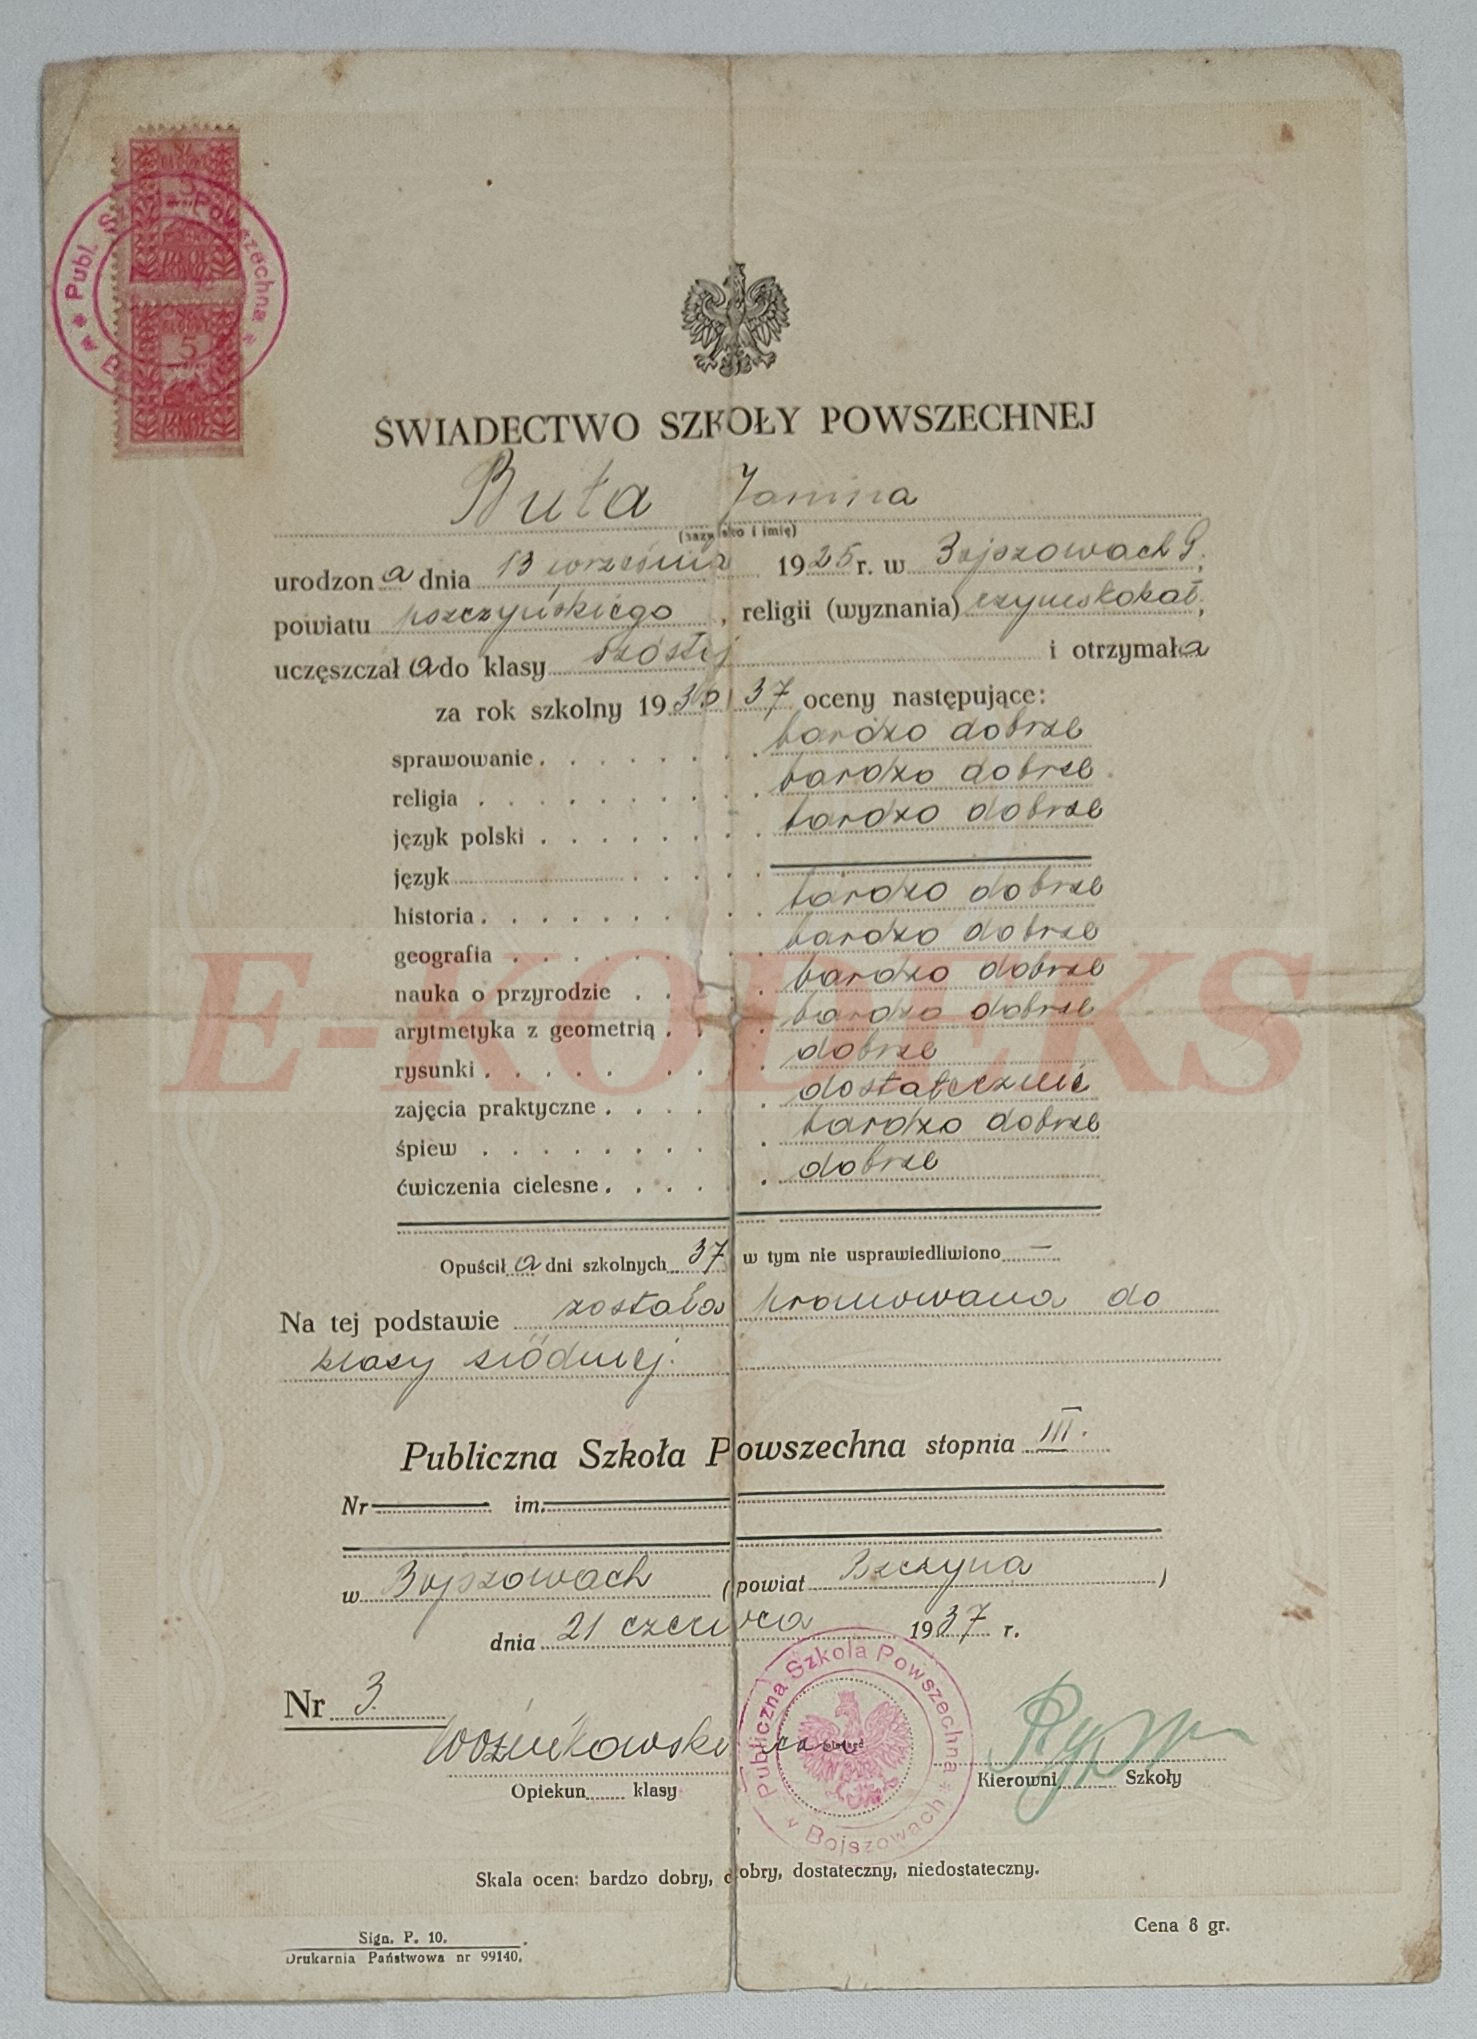 Publ. Szkoła Powszechna
5
5
ŚWIADECTWO SZKOŁY POWSZECHNEJ
Buła Janina
(nazwisko i imię)
urodzona dnia 13 września 1925 r. w Bojszowach G.,
powiatu pszczyńskiego, religii (wyznania) rzymskokat.,
uczęszczała do klasy szóstej i otrzymała
za rok szkolny 1936/37 oceny następujące:
sprawowanie . . . . . . . bardzo dobrze
religia . . . . . . . . . . bardzo dobrze
język polski . . . . . . . . bardzo dobrze
język
historia . . . . . . . . . bardzo dobrze
geografia . . . . . . . . bardzo dobrze
nauka o przyrodzie . . . . bardzo dobrze
arytmetyka z geometrią . . . bardzo dobrze
rysunki . . . . . . . . . dobrze
zajęcia praktyczne . . . . . dostatecznie
śpiew . . . . . . . . . . bardzo dobrze
ćwiczenia cielesne . . . . . dobrze
Opuściła dni szkolnych 37 w tym nie usprawiedliwiono —
Na tej podstawie została promowana do
klasy siódmej.
Publiczna Szkoła Powszechna stopnia III.
Nr im.
w Bojszowach (powiat Pszczyna)
dnia 21 czerwca 1937 r.
Nr 3.
Woźnikowski
Publiczna Szkoła Powszechna
* Bojszowach *
Opiekun klasy
Kierowni Szkoły
Skala ocen: bardzo dobry, dobry, dostateczny, niedostateczny.
Sign. P. 10.
Drukarnia Państwowa nr 99140.
Cena 8 gr.
E-KOLEKS